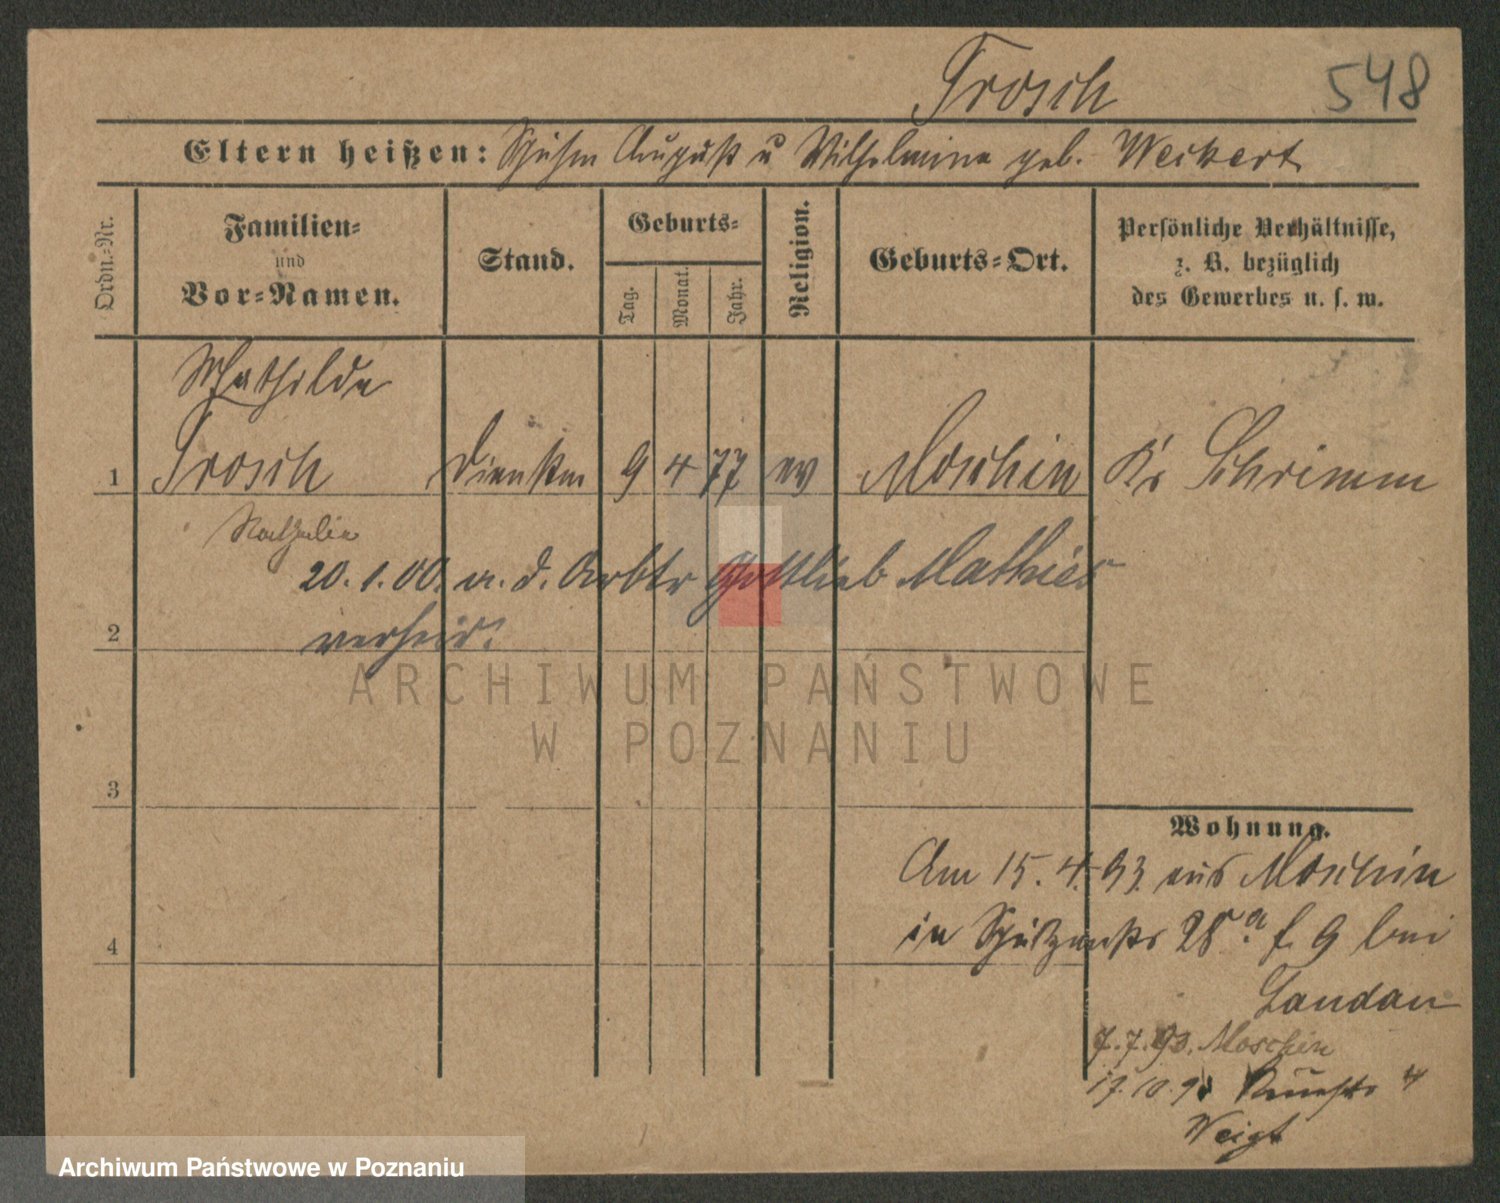 Frosch 548
Eltern heißen: August u Wilhelmine geb. Weikert
Ordn.-Nr.
Familien-
und
Vor-Namen.
Stand.
Geburts-
Tag.
Monat.
Jahr.
Religion.
Geburts-Ort.
Persönliche Verhältnisse,
z. B. bezüglich
des Gewerbes u. s. w.
Mathilde
1 Frosch Dienstm 9 4 77 ev Moschin Kr Schrimm
Nathalie
20.1.00. m. d. Arbtr Gottlieb Mathies
2 verheir.
ARCHIWUM PAŃSTWOWE
W POZNANIU
3
Wohnung.
Am 15.4.93. aus Moschin
in 28a f. 9 bei
4
Landau
7.7.93. Moschin
17.10.93 4
Weigt
Archiwum Państwowe w Poznaniu